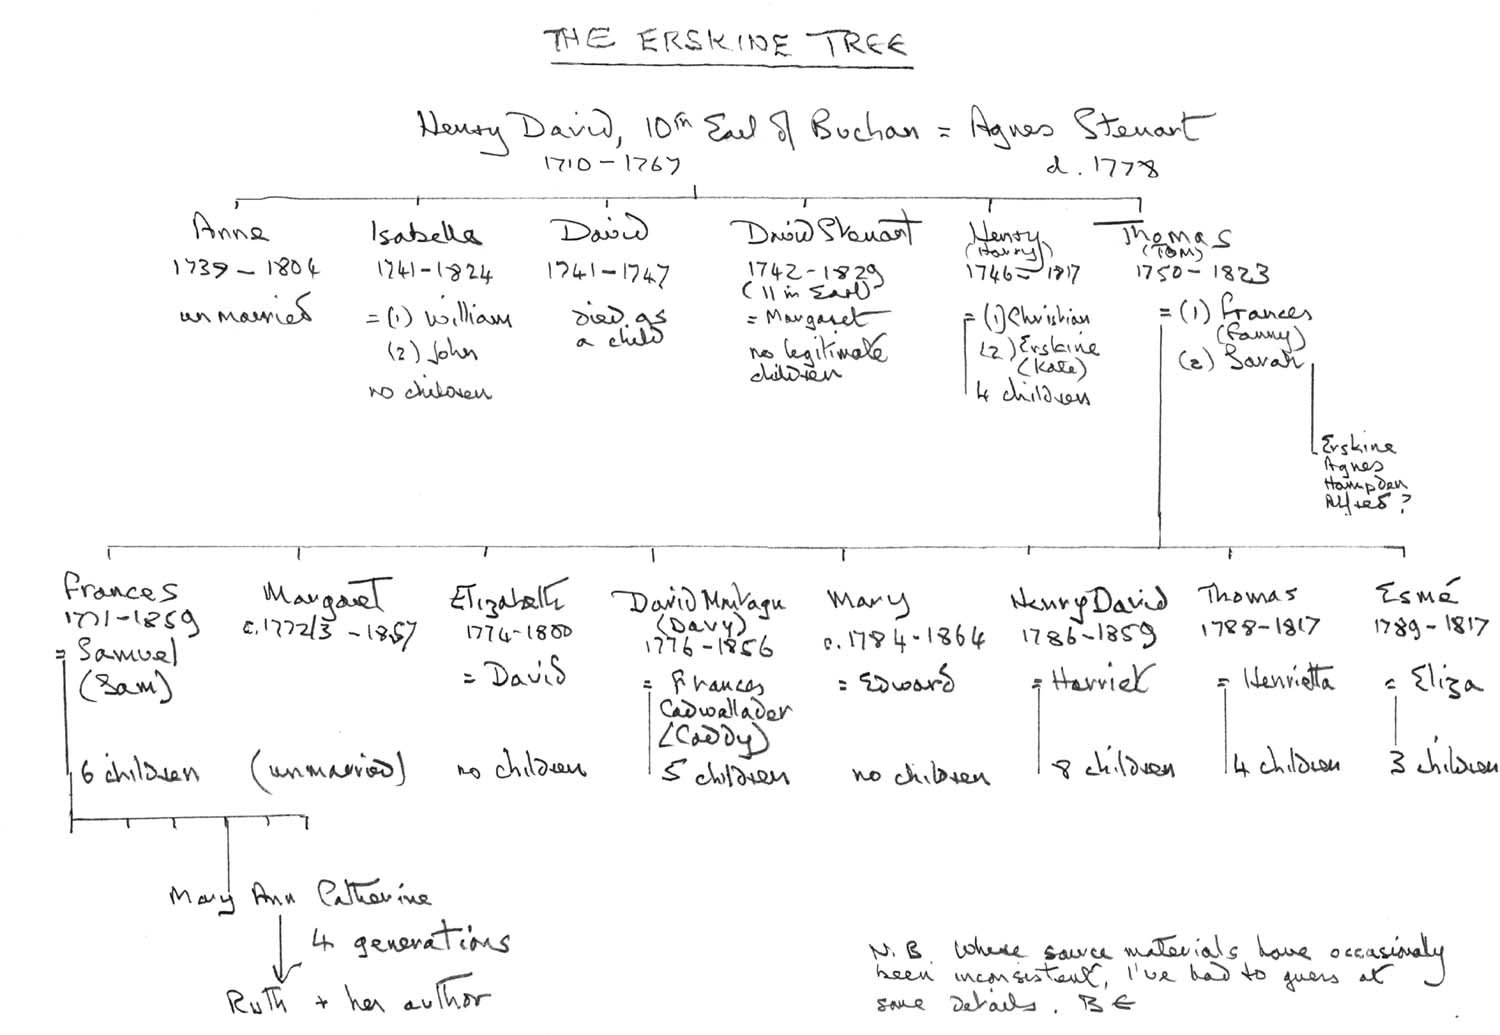 THE ERSKINE TREE
Henry David, 10th Earl of Buchan = Agnes Steuart
1710-1767
d. 1778
Anne
1739-1804
unmarried
Isabella
1741-1824
= (1) William
(2) John
no children
David
1741-1747
died as
a child
David Steuart
1742-1829
(11th Earl)
= Margaret
no legitimate
children
Henry
(Harry)
1746-1817
= (1) Christian
(2) Erskine
(Kate)
4 children
Thomas
(Tom)
1750-1823
= (1) Frances
(Fanny)
(2) Sarah
Erskine
Agnes
Hampden
Alfred?
Frances
1771-1859
= Samuel
(Sam)
6 children
Margaret
c.1772/3-1857
(unmarried)
Elizabeth
1774-1800
= David
no children
David Montagu
(Davy)
1776-1856
= Frances
Cadwallader
(Caddy)
5 children
Mary
c.1784-1864
= Edward
no children
Henry David
1786-1859
= Harriet
8 children
Thomas
1788-1817
= Henrietta
4 children
Esmé
1789-1817
= Eliza
3 children
Mary Ann Catherine
4 generations
Ruth + her author
N.B. Where source materials have occasionaly
been inconsistent, I've had to guess at
some details. B E